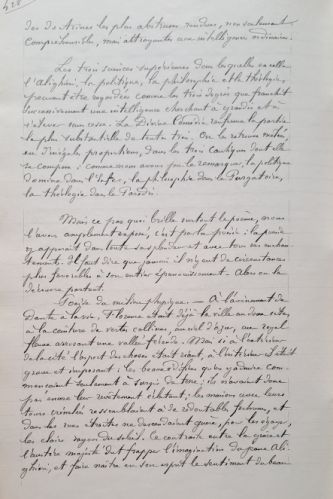 des doctrines les plus abstraites rendues, non seulement
compréhensibles, mais attrayantes aux intelligences ordinaires.
Les trois sciences supérieures dans lesquelles excella
l'Alighieri, la politique, la philosophie et la théologie,
peuvent être regardées comme les trois degrés que franchit
successivement une intelligence cherchant à grandir et à
s'élever sans cesse. La Divine Comédie renferme la partie
la plus substantielle de toutes trois. On les retrouve mêlées,
en d'inégales proportions, dans les trois cantiques dont elle
se compose; comme nous avons pu le remarquer, la politique
domine dans l'Enfer, la philosophie dans le Purgatoire,
la théologie dans le Paradis.
Mais ce par quoi brille surtout le poème, nous
l'avons amplement exposé, c'est par la poésie: la poésie
y apparaît dans toute sa splendeur et avec tous ses enchan
tements. Il faut dire que jamais il n'y eut de circonstances
plus favorables à son entier épanouissement. Alors on la
découvre partout.
même physique. — À l'avènement de
Dante à la vie, Florence était déjà la ville au doux site,
à la ceinture de vertes collines, au ciel d'azur, au royal
fleuve arrosant une vallée féconde. Mais si à l'extérieur
de la cité l'aspect des choses était riant, à l'intérieur il était
grave et imposant: les beaux édifices qu'on y admire com
mençaient seulement à sortir de terre; ils n'avaient donc
pas encore leur revêtement éclatant; les maisons avec leurs
tours crénelées ressemblaient à de redoutables forteresses, et
dans les rues étroites ne descendaient guère, pour les égayer,
les clairs rayons du soleil. Ce contraste entre la grâce et
l'austère majesté dut frapper l'imagination du jeune Ali
ghieri, et faire naître en son esprit le sentiment du beau